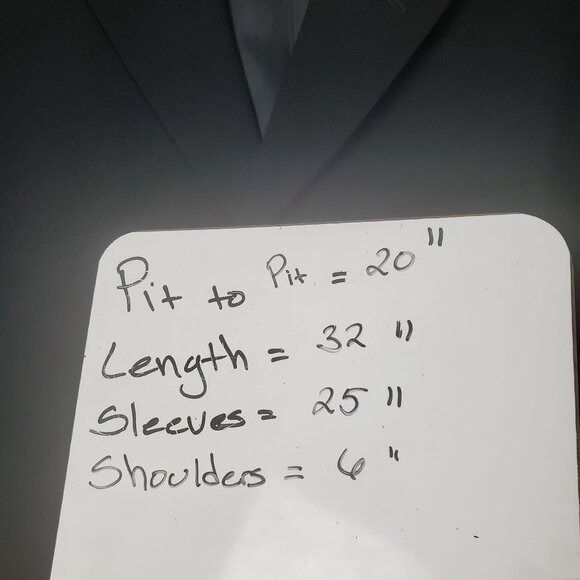 Pit to Pit = 20"
Length = 32"
Sleeves = 25"
Shoulders = 6"